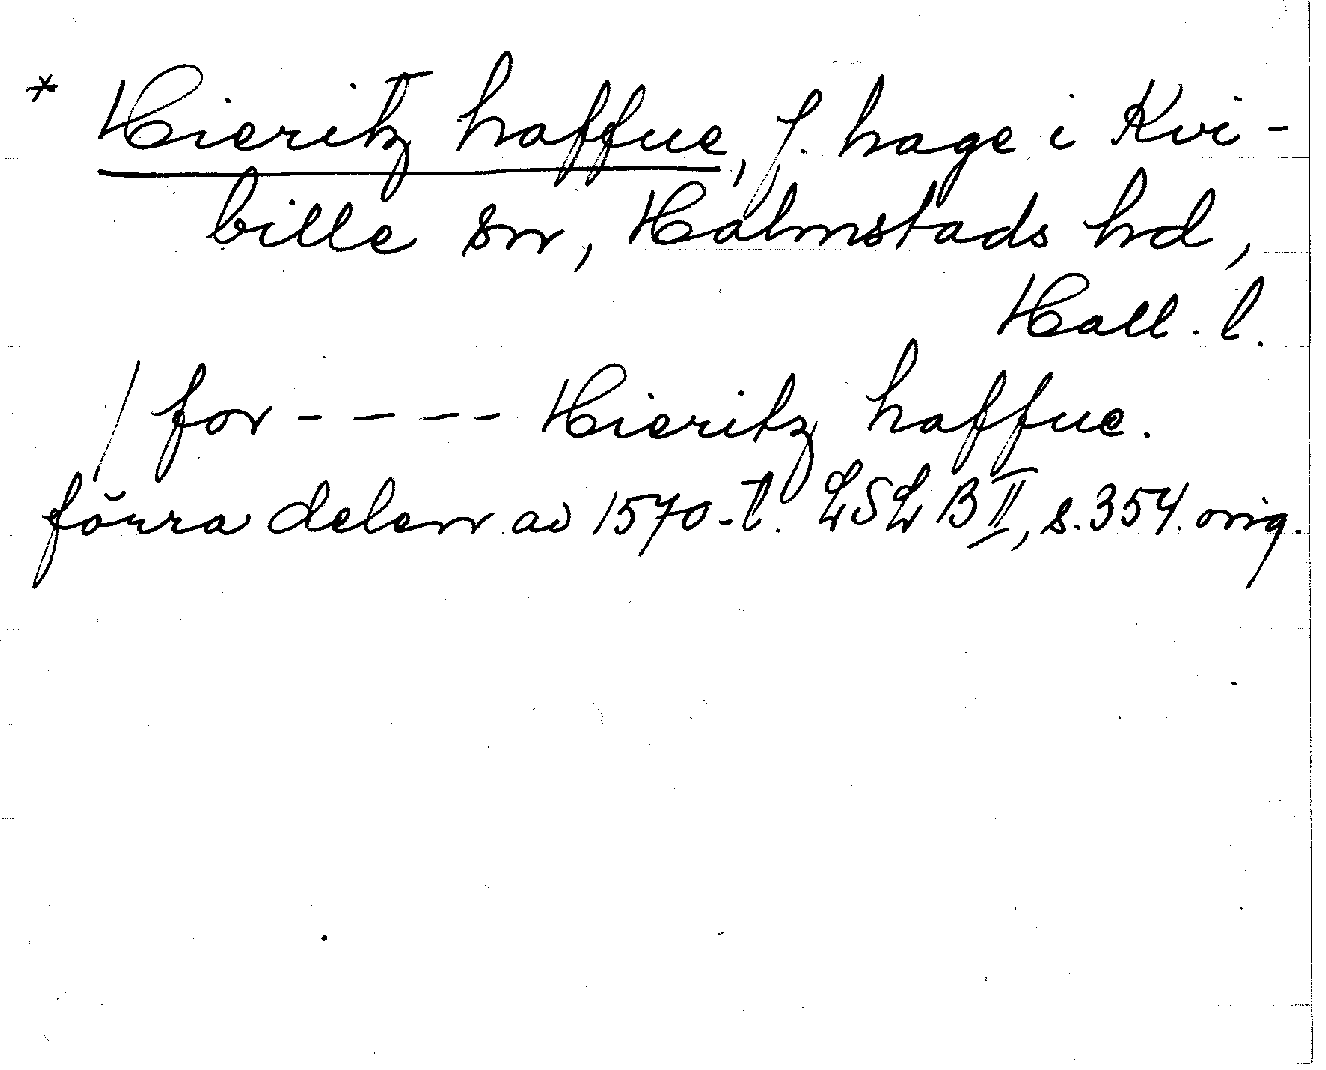 * Hieritz haffue, f. hage i Kvi-
bille sn, Halmstads hd,
Hall. l.
/ for - - - - Hieritz haffue.
förra delen av 1570-t. LSL B II, s. 354. orig.